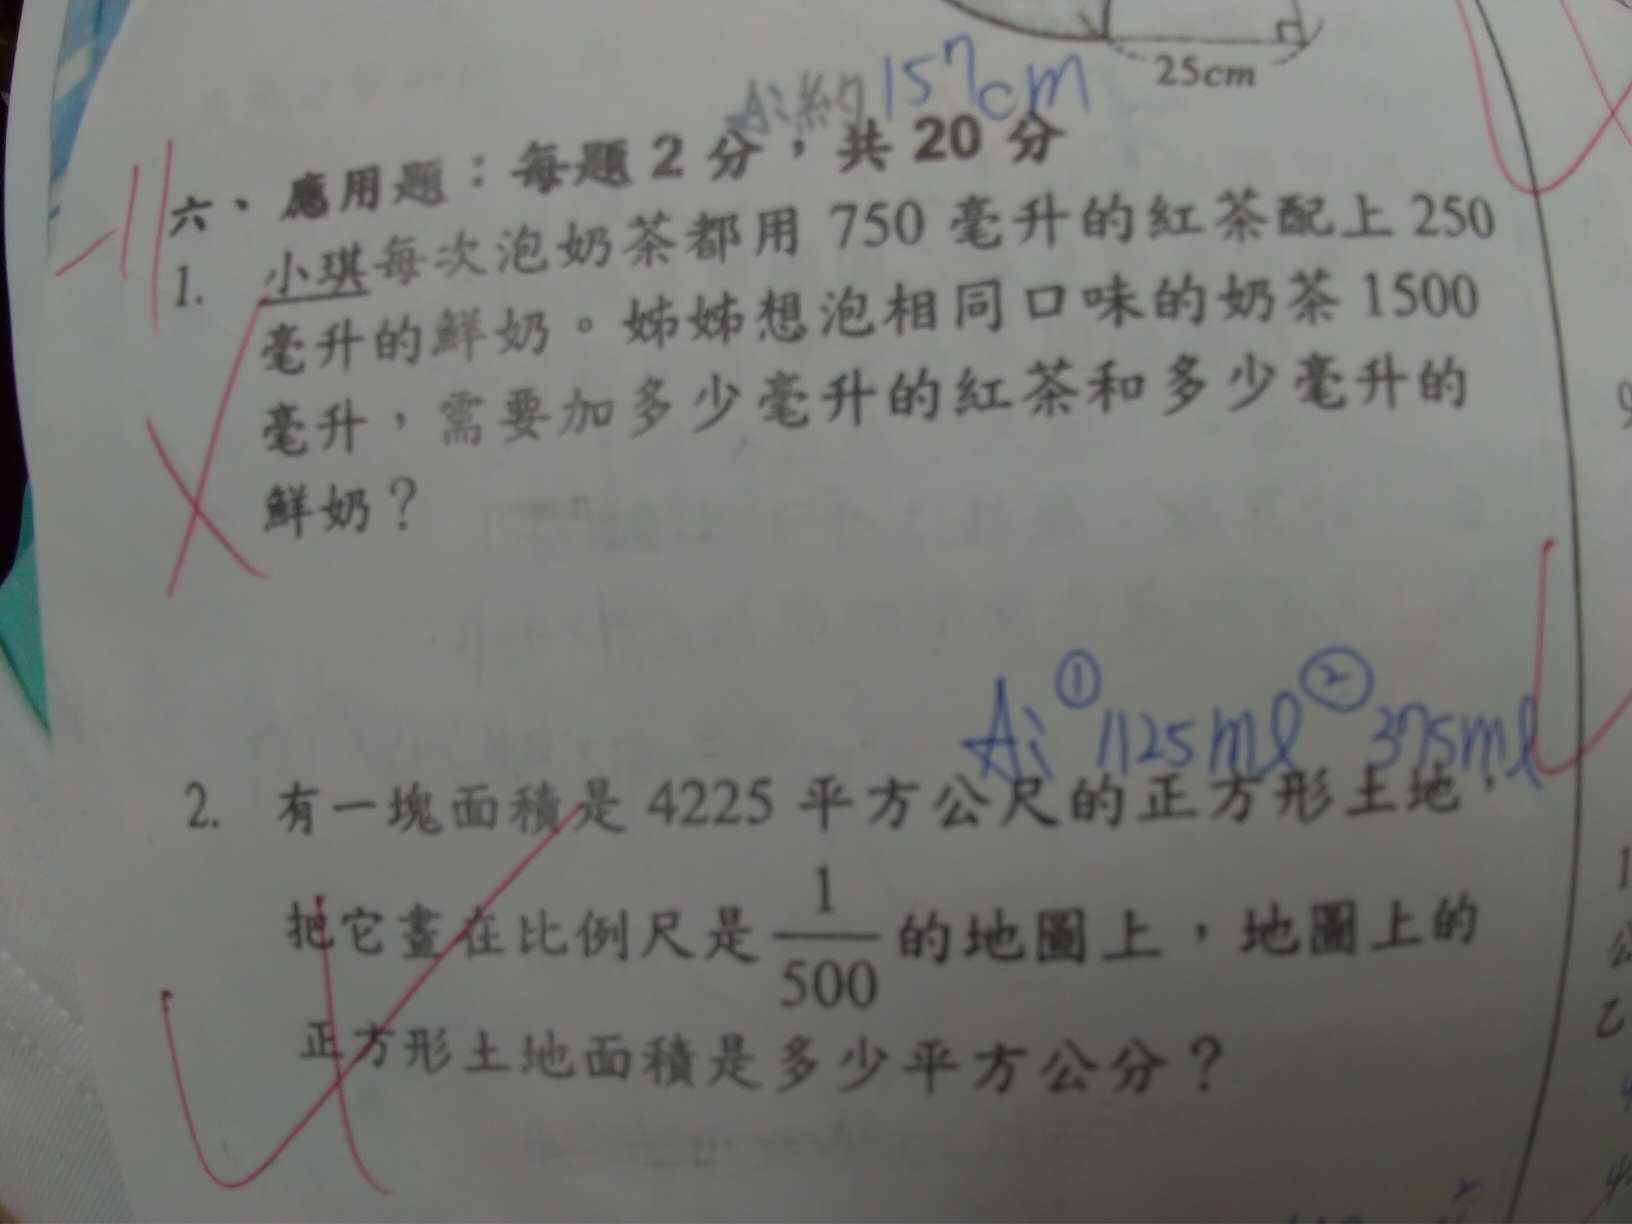 25cm
Ai約157cm
-11
六、應用題：每題2分，共20分
1. 小琪每次泡奶茶都用 750 毫升的紅茶配上 250
毫升的鮮奶。姊姊想泡相同口味的奶茶 1500
毫升，需要加多少毫升的紅茶和多少毫升的
鮮奶？
Ai ①1125ml ②375ml
2. 有一塊面積是 4225 平方公尺的正方形土地，
把它畫在比例尺是 1/500 的地圖上，地圖上的
正方形土地面積是多少平方公分？